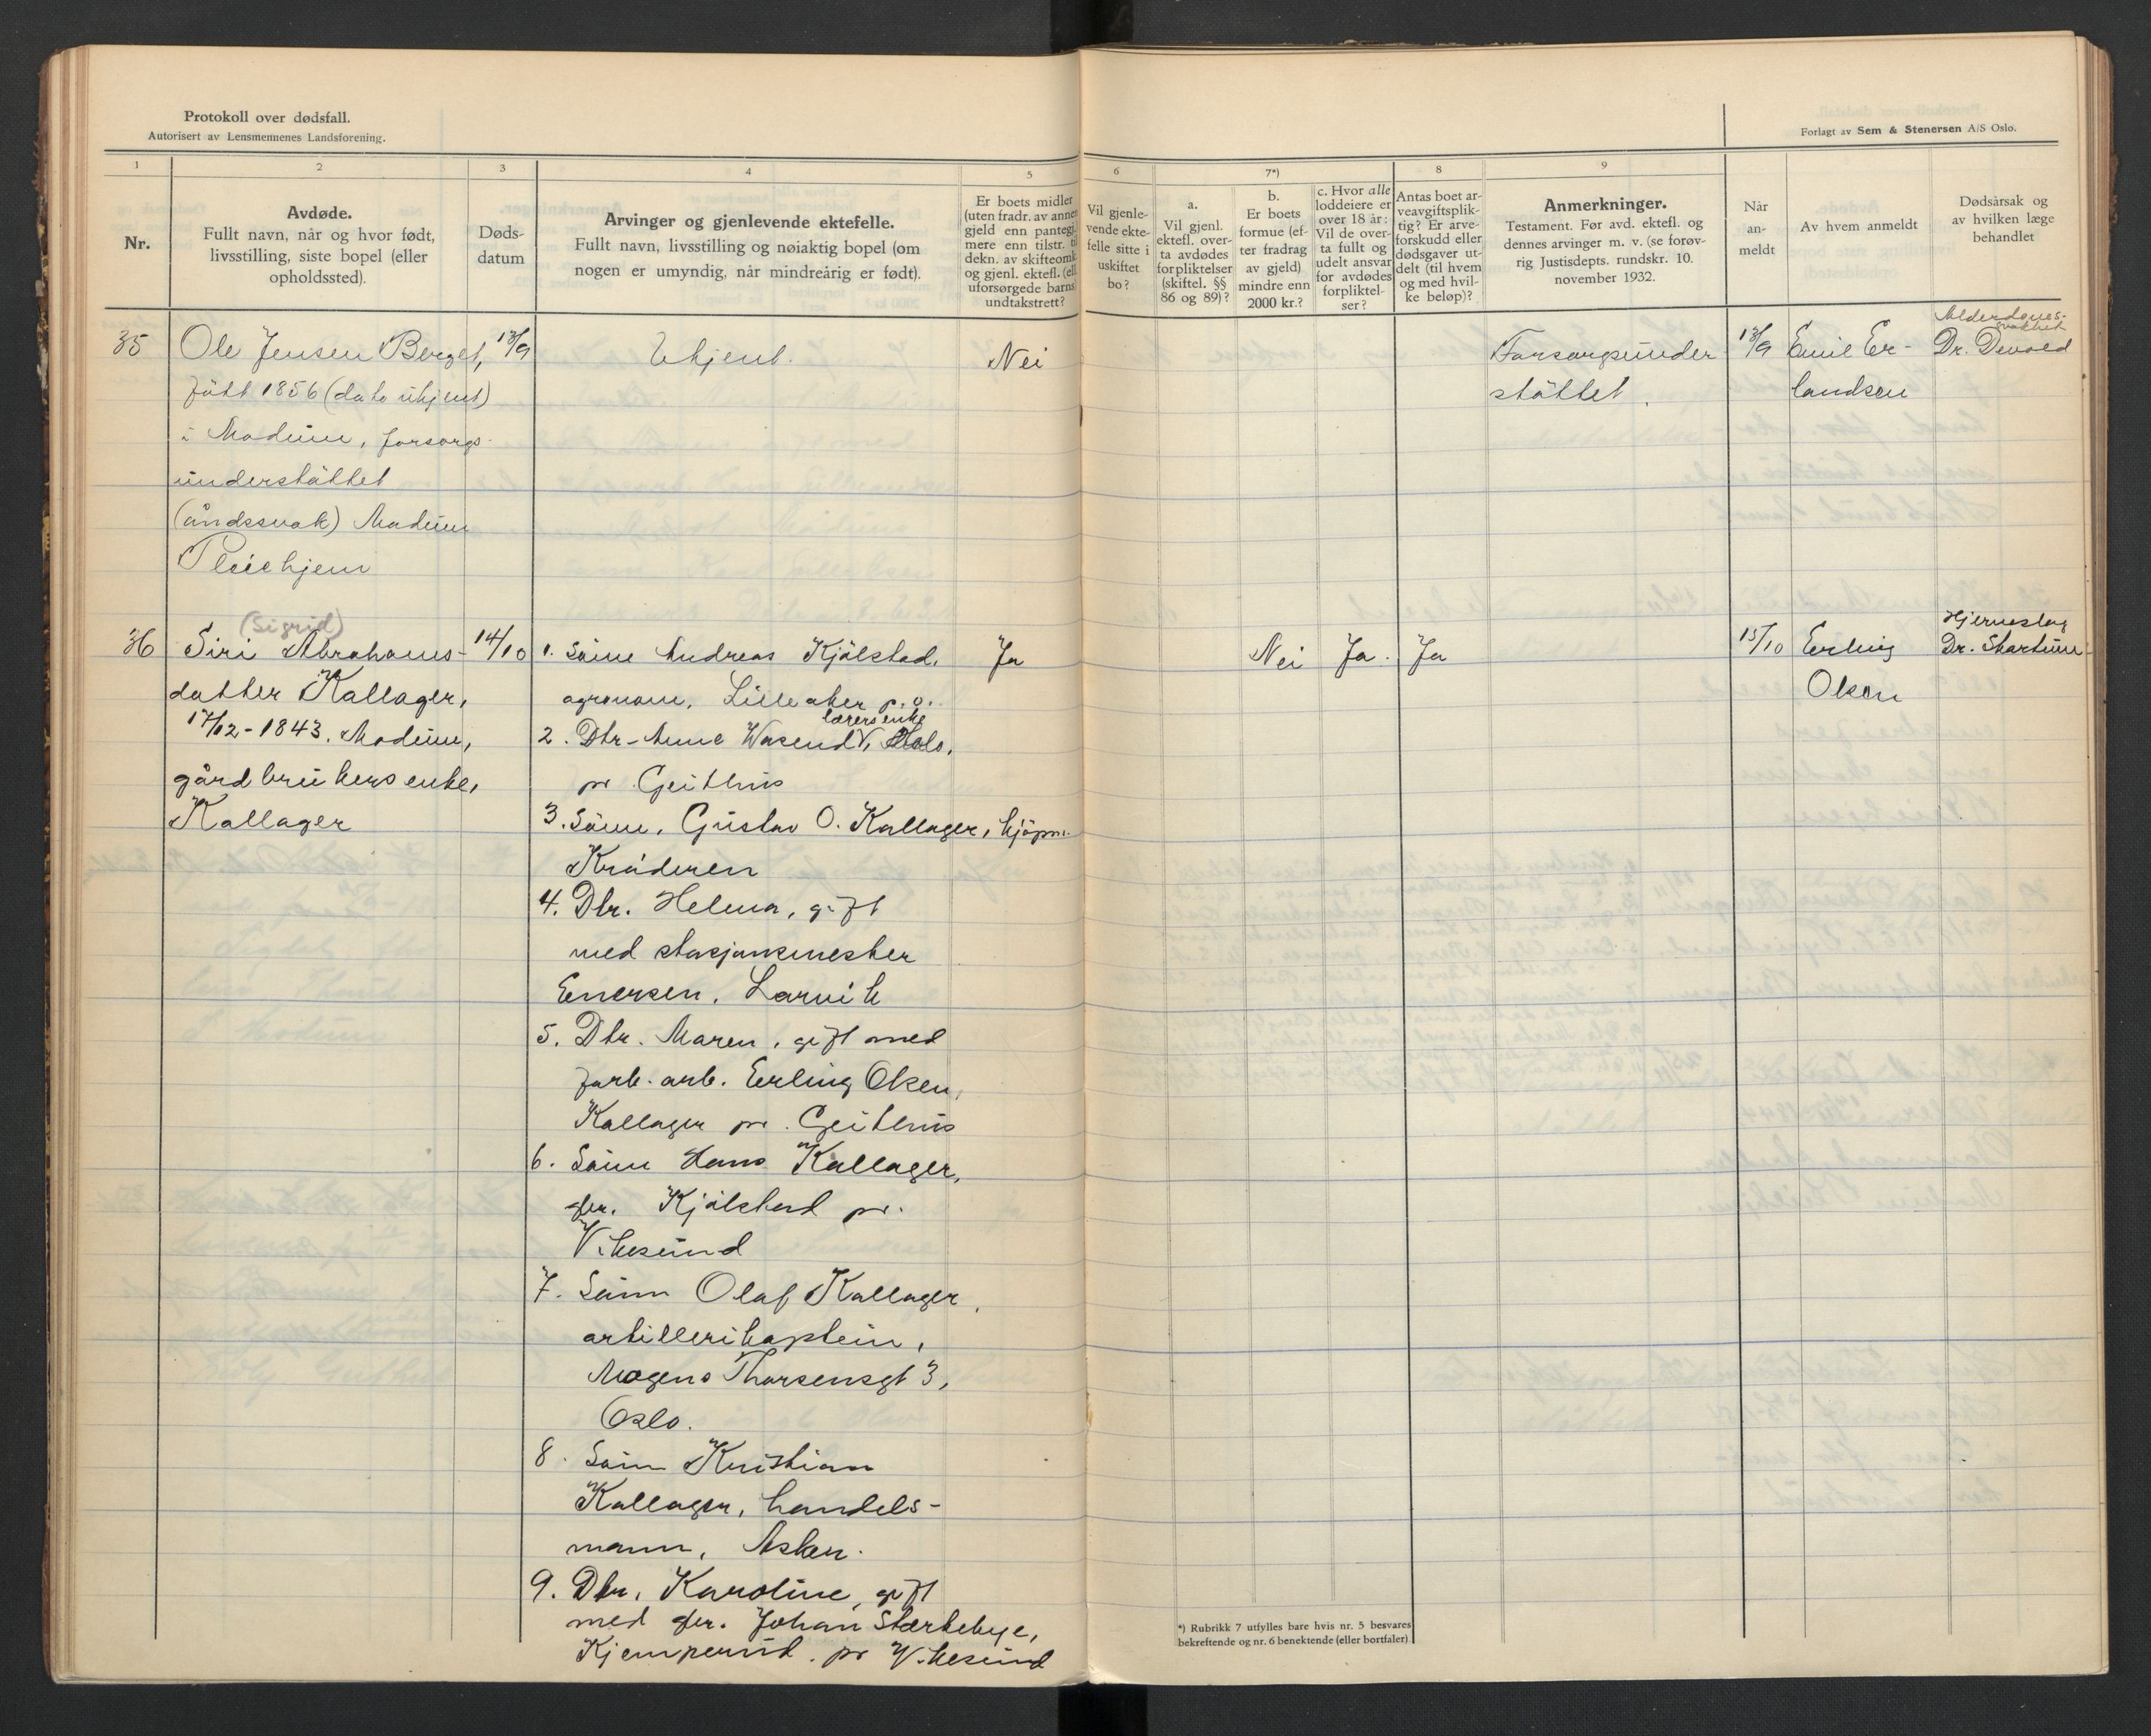 Protokoll over dødsfall.
Autorisert av Lensmennenes Landsforening.
Forlagt av Sem & Stenersen A/S Oslo.
1
2
3
4
5
6
7*)
8
9
Nr.
Avdøde.
Fullt navn, når og hvor født,
livsstilling, siste bopel (eller
opholdssted).
Døds-
datum
Arvinger og gjenlevende ektefelle.
Fullt navn, livsstilling og nøiaktig bopel (om
nogen er umyndig, når mindreårig er født).
Er boets midler
(uten fradr. av annen
gjeld enn pantegj.
mere enn tilstr. til
dekn. av skifteomk.
og gjenl. ektefl. (ell.
uforsørgede barns)
undtakstrett?
Vil gjenle-
vende ekte-
felle sitte i
uskiftet
bo?
a.
Vil gjenl.
ektefl. over-
ta avdødes
forpliktelser
(skiftel. §§
86 og 89)?
b.
Er boets
formue (ef-
ter fradrag
av gjeld)
mindre enn
2000 kr.?
c. Hvor alle
loddeiere er
over 18 år:
Vil de over-
ta fullt og
udelt ansvar
for avdødes
forpliktel-
ser?
Antas boet ar-
veavgiftsplik-
tig? Er arve-
forskudd eller
dødsgaver ut-
delt (til hvem
og med hvil-
ke beløp)?
Anmerkninger.
Testament. Før avd. ektefl. og
dennes arvinger m. v. (se forøv-
rig Justisdepts. rundskr. 10.
november 1932.
Når
an-
meldt
Av hvem anmeldt
Dødsårsak og
av hvilken læge
behandlet
35
Ole Jensen Berget,
født 1856 (dato ukjent)
i Modum, forsorgs-
understøttet
(åndssvak) Modum
Pleiehjem
13/9
Ukjent.
Nei
Forsorgsunder
støttet.
13/9
Emil Er-
landsen
Alderdoms-
svakhet
Dr. Devold
36
(Sigrid)
Siri Abrahams-
datter Kallager,
17/12-1843. Modum,
gårdbrukers enke,
Kallager
14/10
1. Sønn Andreas Kjølstad,
agronom, Lilleaker p.o.
lærers enke
2. Dtr. Anne Wasend,
pr Geithus
3. Sønn, Gustav O. Kallager, kjøpm.
Krøderen
4. Dtr. Helena, gift
med stasjonsmester
Enersen, Larvik
5. Dtr. Maren, gift med
fabr. arb. Erling Oken,
Kallager pr. Geithus
6. Sønn Hans Kallager,
gbr. Kjølstad pr.
Vikesund
7. Sønn Olaf Kallager,
artillerikaptein,
Mogens Thorsensgt 3,
Oslo.
8. Sønn Kristian
Kallager, handels-
mann, Asker.
9. Dtr. Karoline, gift
med gbr. Johan Størkebye,
Kjemperud. pr Vikesund
Ja
Nei
Ja.
Ja
15/10
Erling
Oken
Hjerneslag
Dr. Startum
*) Rubrikk 7 utfylles bare hvis nr. 5 besvares
bekreftende og nr. 6 benektende (eller bortfaler).